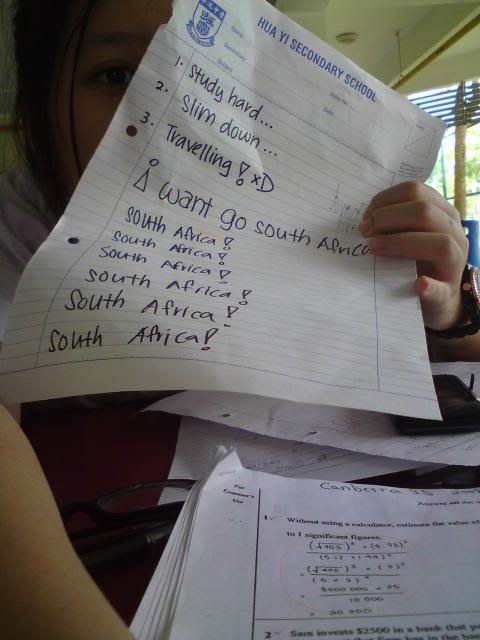 HUA YI SECONDARY SCHOOL
Name
Secondary
Subject
Index No.
Date
1. Study hard...
2. Slim down...
3. Travelling! xD
I want go south Africa
South Africa!
South Africa!
South Africa!
South Africa!
South Africa!
South Africa!
For
Examiner's
Use
Canberra SS
Answer all the
1 Without using a calculator, estimate the value of
to 1 significant figures.
8000 000 × 25
10 000
= 20 000
2 Sam invests $2500 in a bank that